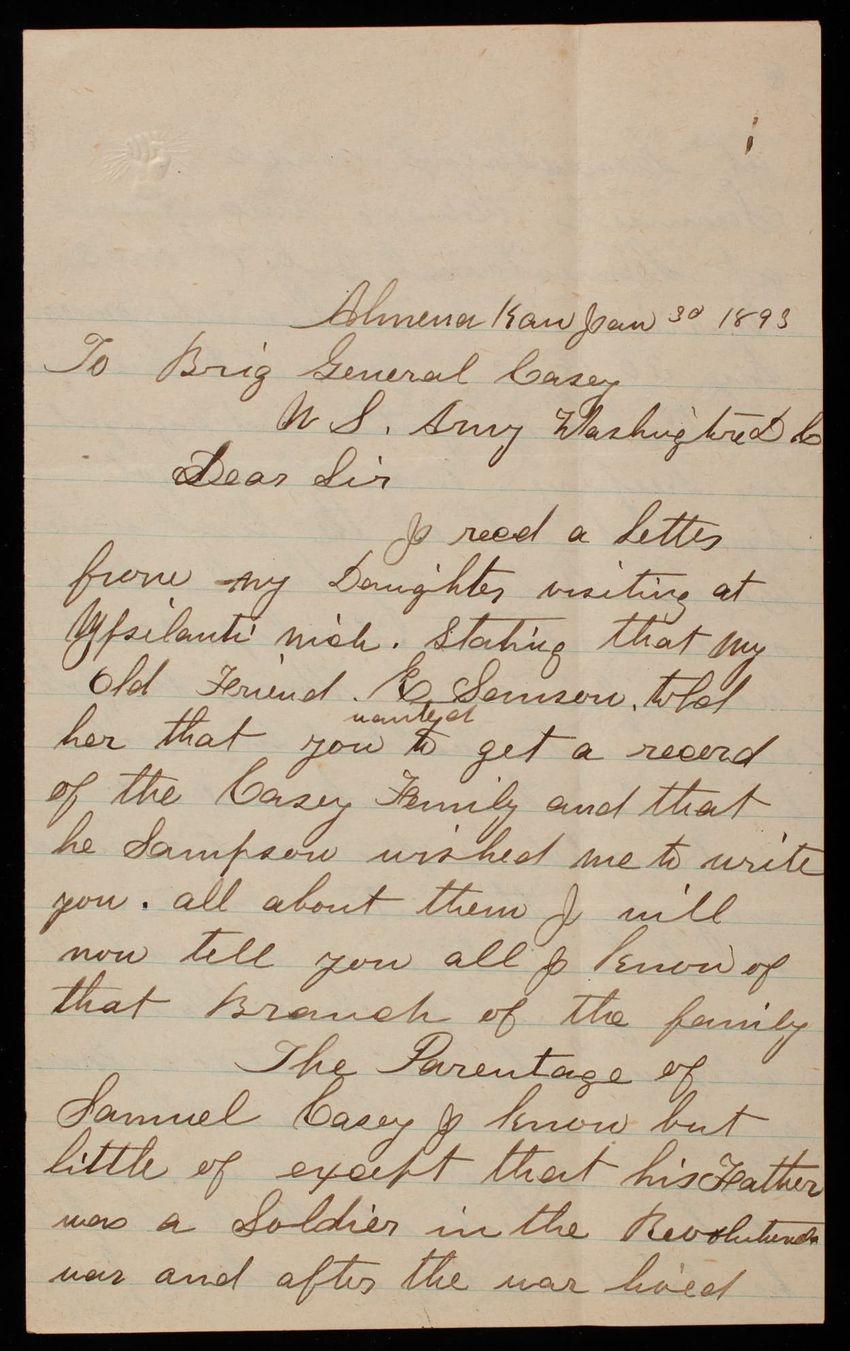 Almena Kan Jan 3d 1893
To Brig General Casey
U S. Army Washington D C
Dear Sir
I recd a letter
from my Daughter visiting at
Ypsilanti Mich. Stating that my
Old Friend. E Samson, told
wanted
her that you to get a record
of the Casey Family and that
he Sampson wished me to write
you. all about them I will
now tell you all I know of
that Branch of the family
The Parentage of
Samuel Casey I know but
little of except that his Father
was a Soldier in the
war and after the war lived